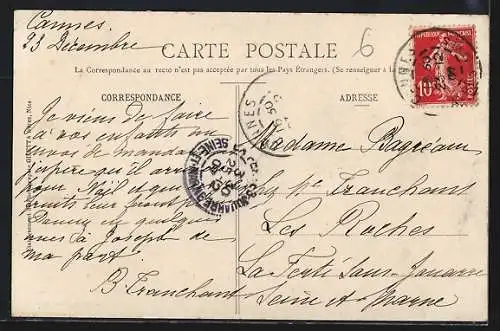 Cannes.
23 Décembre
6
CARTE POSTALE
La Correspondance au recto n'est pas acceptée par tous les Pays Étrangers. (Se renseigner à la
CORRESPONDANCE
Je viens de faire
à vos enfants un
envoi de mandarines
j'espère qu'il arrivera
pour Noël
fruits leur feront
Donnez en quelques
unes à Joseph de
ma part.
B Franchant
ADRESSE
Madame
chez Mme Franchant
Les Roches
La Ferté Sous-Jouarre
Seine et Marne
RÉPUBLIQUE FRANÇAISE
10
POSTES
CANNES
SEINE-ET-MARNE